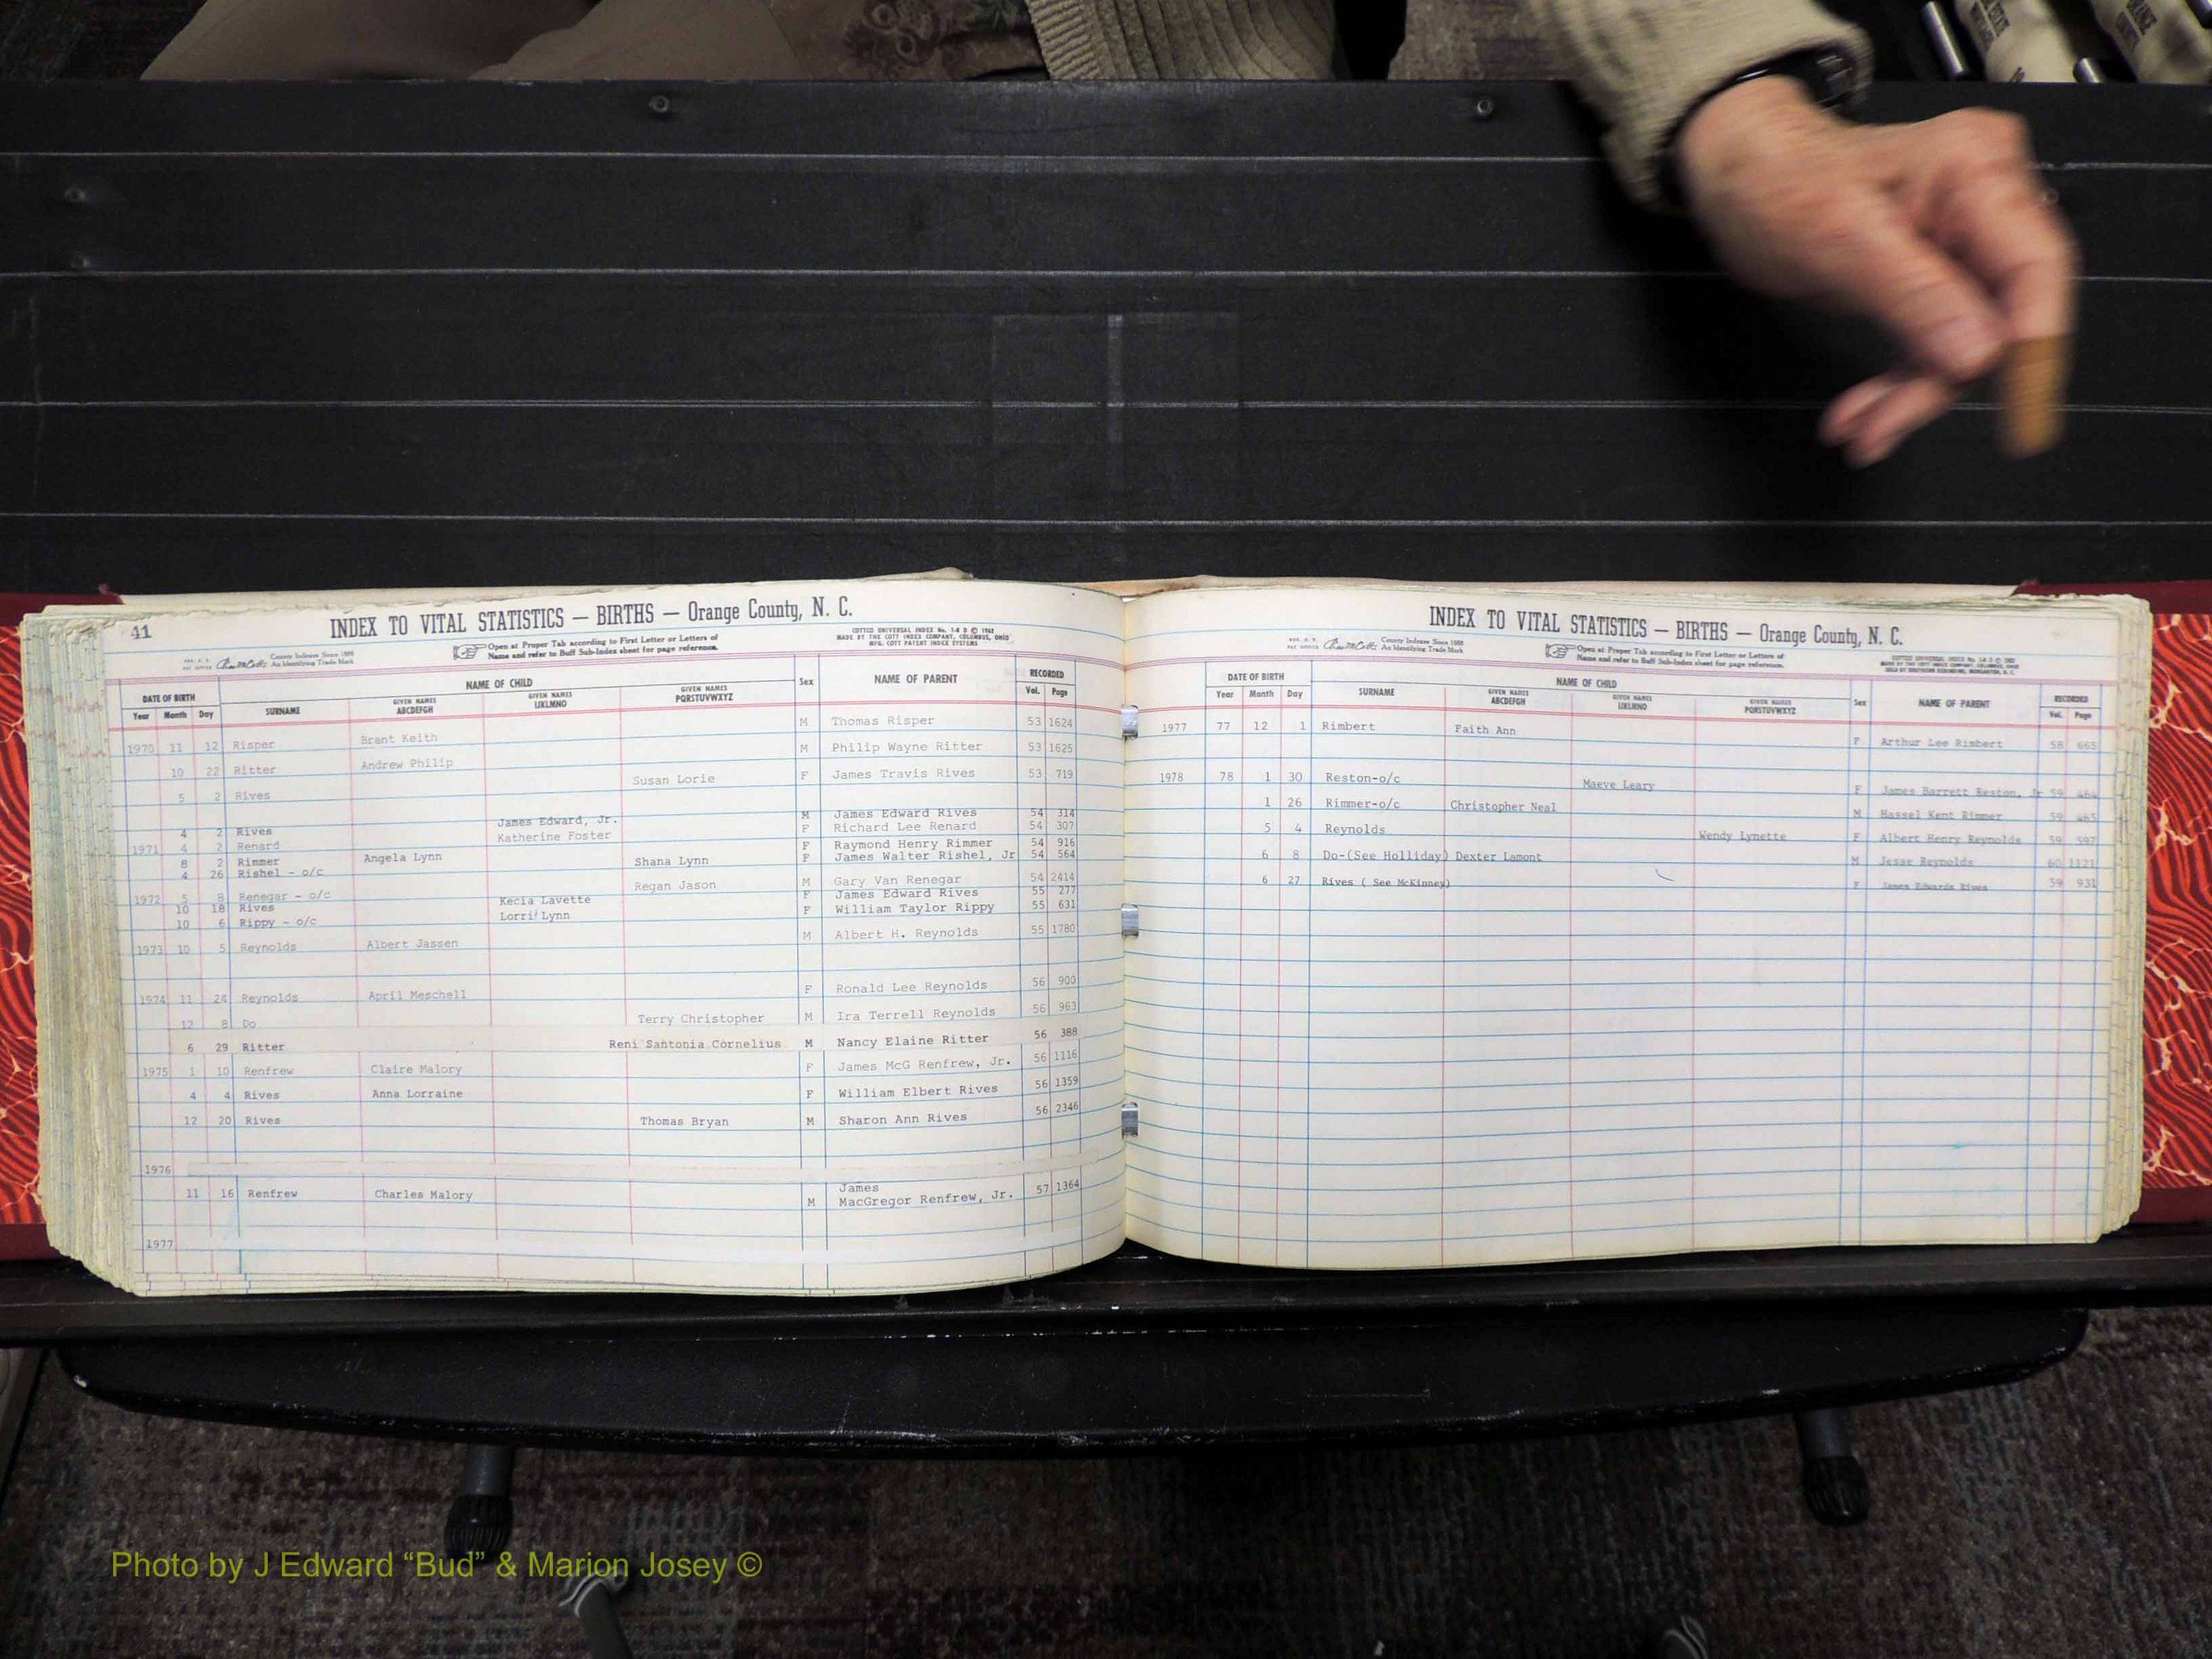 41
INDEX TO VITAL STATISTICS — BIRTHS — Orange County, N. C.
County Indexes Since 1888
An Identifying Trade Mark
Open at Proper Tab according to First Letter or Letters of
Name and refer to Buff Sub-Index sheet for page reference.
COTTCO UNIVERSAL INDEX No. 1-8 D © 1962
MADE BY THE COTT INDEX COMPANY, COLUMBUS, OHIO
MFG. COTT PATENT INDEX SYSTEMS
DATE OF BIRTH NAME OF CHILD Sex NAME OF PARENT RECORDED
Year Month Day SURNAME GIVEN NAMES ABCDEFGH GIVEN NAMES IJKLMNO GIVEN NAMES PQRSTUVWXYZ Vol. Page
1970 11 12 Risper Brant Keith M Thomas Risper 53 1624
10 22 Ritter Andrew Philip M Philip Wayne Ritter 53 1625
5 2 Rives Susan Lorie F James Travis Rives 53 719
4 2 Rives James Edward, Jr. M James Edward Rives 54 314
1971 4 2 Renard Katherine Foster F Richard Lee Renard 54 307
8 2 Rimmer Angela Lynn F Raymond Henry Rimmer 54 916
4 26 Rishel - o/c Shana Lynn F James Walter Rishel, Jr 54 564
1972 5 8 Renegar - o/c Regan Jason M Gary Van Renegar 54 2414
10 18 Rives Kecia Lavette F James Edward Rives 55 277
10 6 Rippy - o/c Lorri Lynn F William Taylor Rippy 55 631
1973 10 5 Reynolds Albert Jassen M Albert H. Reynolds 55 1780
1974 11 24 Reynolds April Meschell F Ronald Lee Reynolds 56 900
12 8 Do Terry Christopher M Ira Terrell Reynolds 56 963
6 29 Ritter Reni Santonia Cornelius M Nancy Elaine Ritter 56 388
1975 1 10 Renfrew Claire Malory F James McG Renfrew, Jr. 56 1116
4 4 Rives Anna Lorraine F William Elbert Rives 56 1359
12 20 Rives Thomas Bryan M Sharon Ann Rives 56 2346
1976
11 16 Renfrew Charles Malory M James MacGregor Renfrew, Jr. 57 1364
1977
INDEX TO VITAL STATISTICS — BIRTHS — Orange County, N. C.
County Indexes Since 1888
An Identifying Trade Mark
Open at Proper Tab according to First Letter or Letters of
Name and refer to Buff Sub-Index sheet for page reference.
DATE OF BIRTH NAME OF CHILD Sex NAME OF PARENT RECORDED
Year Month Day SURNAME GIVEN NAMES ABCDEFGH GIVEN NAMES IJKLMNO GIVEN NAMES PQRSTUVWXYZ Vol. Page
1977 77 12 1 Rimbert Faith Ann F Arthur Lee Rimbert 58 665
1978 78 1 30 Reston-o/c Maeve Leary F James Barrett Reston, Jr 59 464
1 26 Rimmer-o/c Christopher Neal M Hassel Kent Rimmer 59 465
5 4 Reynolds Wendy Lynette F Albert Henry Reynolds 59 597
6 8 Do-(See Holliday) Dexter Lamont M Jesse Reynolds 60 1121
6 27 Rives ( See McKinney) F James Edwards Rives 59 931
Photo by J Edward “Bud” & Marion Josey ©